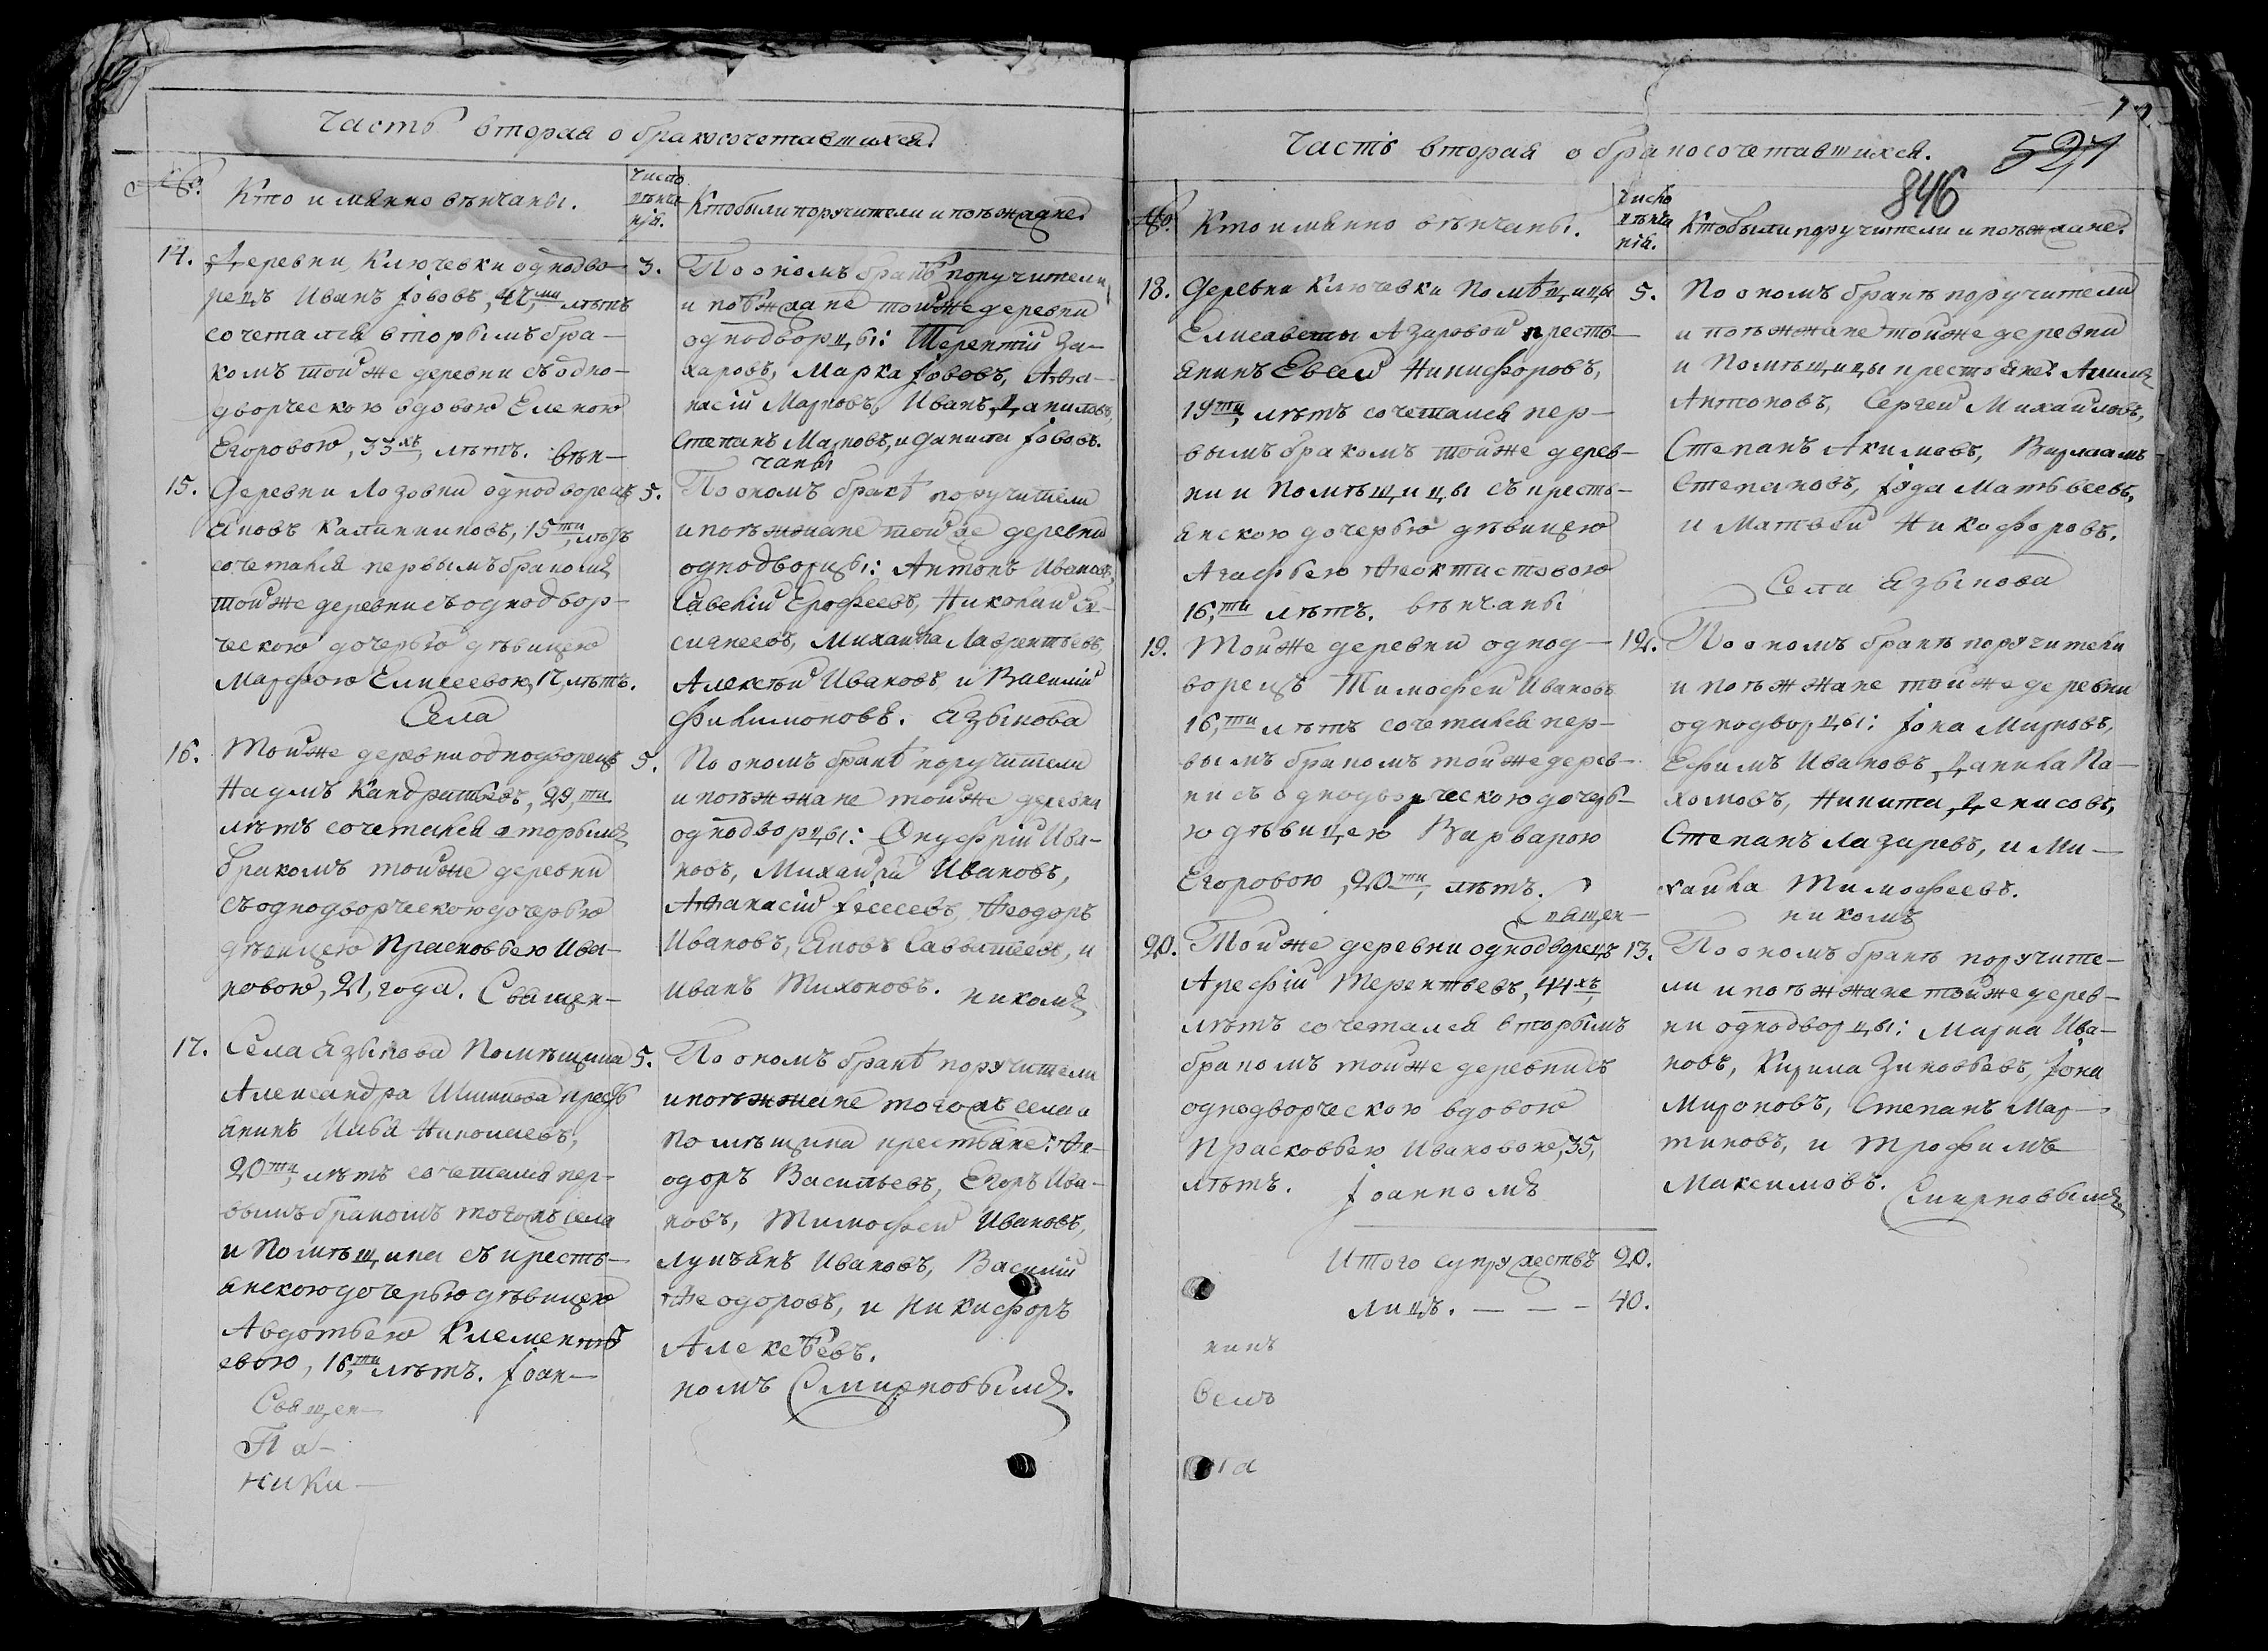 Часть вторая о бракосочетавшихся.
№.
Кто имянно вѣнчаны.
Число
вѣнча
нія.
Кто были поручители и поѣзжане.
14.
Деревни Ключевки однодво-
рецъ Иванъ Іововъ, 47,ми лѣтъ
сочетался вторымъ бра-
комъ той же деревни съ одно-
дворческою вдовою Еленою
Егоровою, 33хъ, лѣтъ. вѣн-
3.
По ономъ бракѣ поручители
и поѣзжане той же деревни
однодворцы: Терентій За-
харовъ, Марка Іововъ, Аѳа-
насій Марковъ, Иванъ Даниловъ,
Степанъ Марковъ, и Данила Іововъ.
чаны
15.
Деревни Лозовки однодворецъ
Яковъ Калинниковъ, 15ти, лѣтъ
сочетался первымъ бракомъ
той же деревни съ однодвор-
ческою дочерью дѣвицею
Марфою Елисеевою, 17, лѣтъ.
Села
5.
По ономъ бракѣ поручители
и поѣзжане той же деревни
однодворцы: Антонъ Ивановъ,
Савелій Ерофеевъ, Николай
Михайла Лаврентьевъ,
Алексѣй Ивановъ, и Василій
Филимоновъ. Языкова
16.
Той же деревни однодворецъ
Наумъ Кандратьевъ, 29,ти
лѣтъ сочетался вторымъ
бракомъ той же деревни
съ однодворческою дочерью
дѣвицею Прасковьею Ива-
новою, 21, года. Священ-
5.
По ономъ бракѣ поручители
и поѣзжане той же деревни
однодворцы: Онуфрій Ива-
новъ, Михайла Ивановъ,
Аѳанасій Ѳеодоръ
Ивановъ, Яковъ Савватеевъ, и
Иванъ Тихоновъ. никомъ
17.
Села Языкова Помѣщика
Александра Шишкова кресть
янинъ Илья Николаевъ,
20ти, лѣтъ сочетался пер-
вымъ бракомъ того жъ села
и Помѣщика съ кресть-
янскою дочерью дѣвицею
Авдотьею Клементь
евою, 16,ти лѣтъ. Іоан-
5.
По ономъ бракѣ поручители
и поѣзжане того жъ села и
помѣщика крестьяне: Ѳе-
одоръ Васильевъ, Егоръ Ива-
новъ, Тимофей Ивановъ,
Лукъянъ Ивановъ, Василій
Ѳеодоровъ, и Никифоръ
Алексѣевъ.
номъ Смирновымъ.
Священ-
Па-
Ники-
Часть вторая о бракосочетавшихся.
527
846
№.
Кто имянно вѣнчаны.
Число
вѣнча
нія.
Кто были поручители и поѣзжане.
18.
Деревни Ключевки Помѣщицы
Елисаветы Азаровой кресть-
янинъ Евсей Никифоровъ,
19ти, лѣтъ сочетался пер-
вымъ бракомъ той же дерев-
ни и Помѣщицы съ кресть-
янскою дочерью дѣвицею
Агафьею Ѳеоктистовою
16,ти лѣтъ. вѣнчаны
5.
По ономъ бракѣ поручители
и поѣзжане той же деревни
и Помѣщицы крестьяне: Акимъ
Антоновъ, Сергей Михайловъ,
Степанъ Акимовъ, Варлаамъ
Степановъ, Іуда Матвѣевъ,
и Матвей Никофоровъ.
Села Языкова
19.
Той же деревни однод-
ворецъ Тимофей Ивановъ
16,ти лѣтъ сочетался пер-
вымъ бракомъ той же дерев-
ни съ однодворческою дочерь-
ю дѣвицею Варварою
Егоровою, 20ти, лѣтъ.
Священ-
12.
По ономъ бракѣ поручители
и поѣзжане той же деревни
однодворцы: Іона Марковъ,
Ефимъ Ивановъ, Данила Па-
хомовъ, Никита Денисовъ,
Степанъ Лазаревъ, и Ми-
хайла Тимофеевъ.
никомъ
20.
Той же деревни однодворецъ
Арефій Терентьевъ, 44хъ,
лѣтъ сочетался вторымъ
бракомъ той же деревни съ
однодворческою вдовою
Прасковьею Ивановою, 35,
лѣтъ. Іоанномъ
13.
По ономъ бракѣ поручите-
ли и поѣзжане той же дерев-
ни однодворцы: Марка Ива-
новъ, Кирила Зиновьевъ, Іона
Мироновъ, Степанъ Мар-
тиновъ, и Трофимъ
Максимовъ. Смирновымъ
Итого супружествъ 20.
лицъ. — — — 40.
никъ
велъ
та